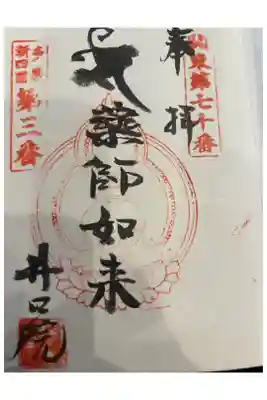 東第七十番
奉拝
藥師如来
多摩
新四国
第三番
井口院